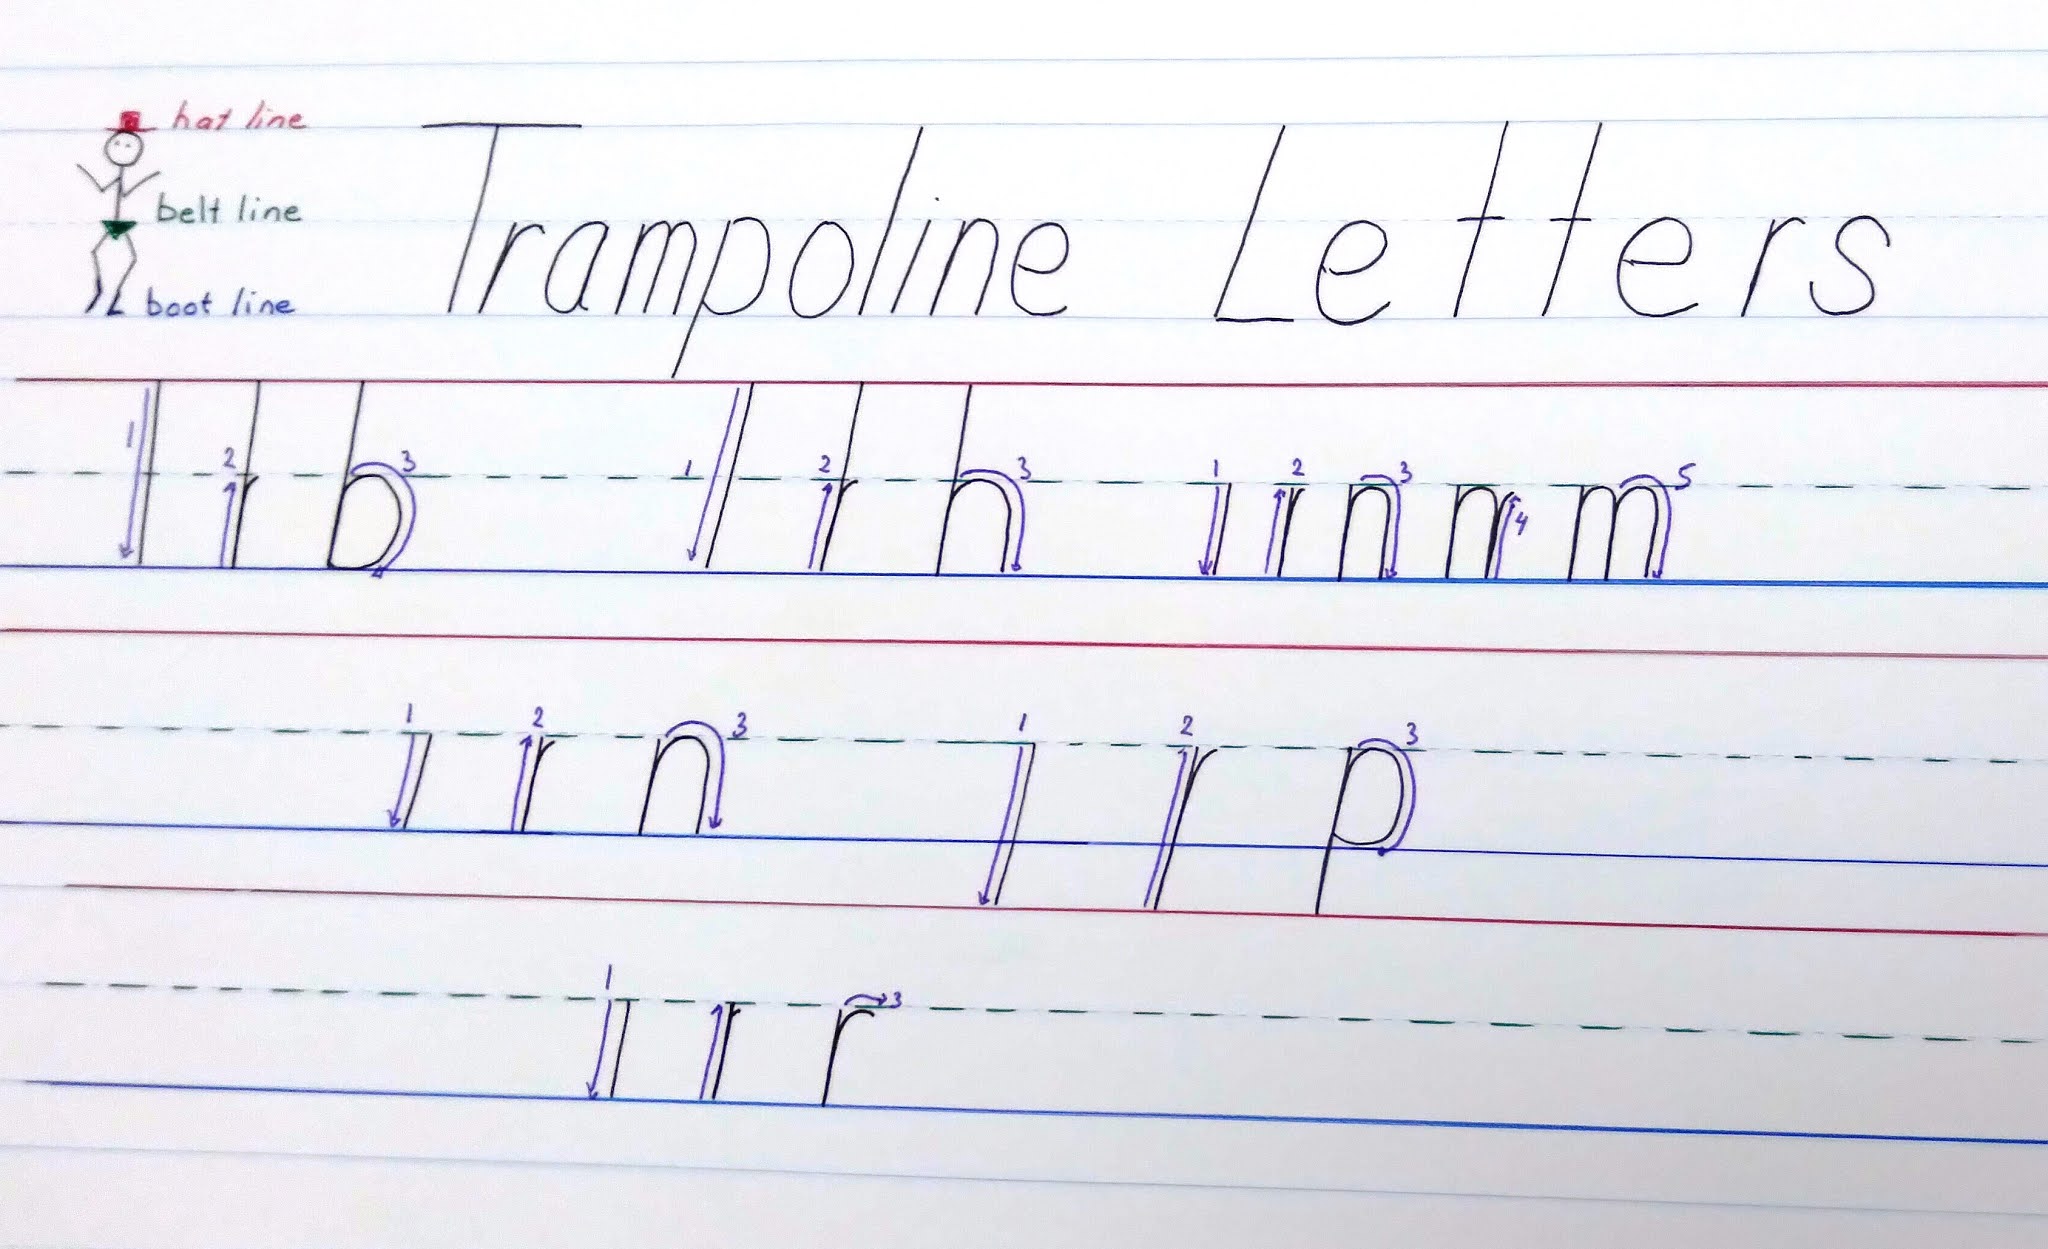 hat line
belt line
boot line
Trampoline Letters
1 2 3 1 2 3 1 2 3 4 5
l r b l r h i r n n m
1 2 3 1 2 3
r n r p
1 3
r r